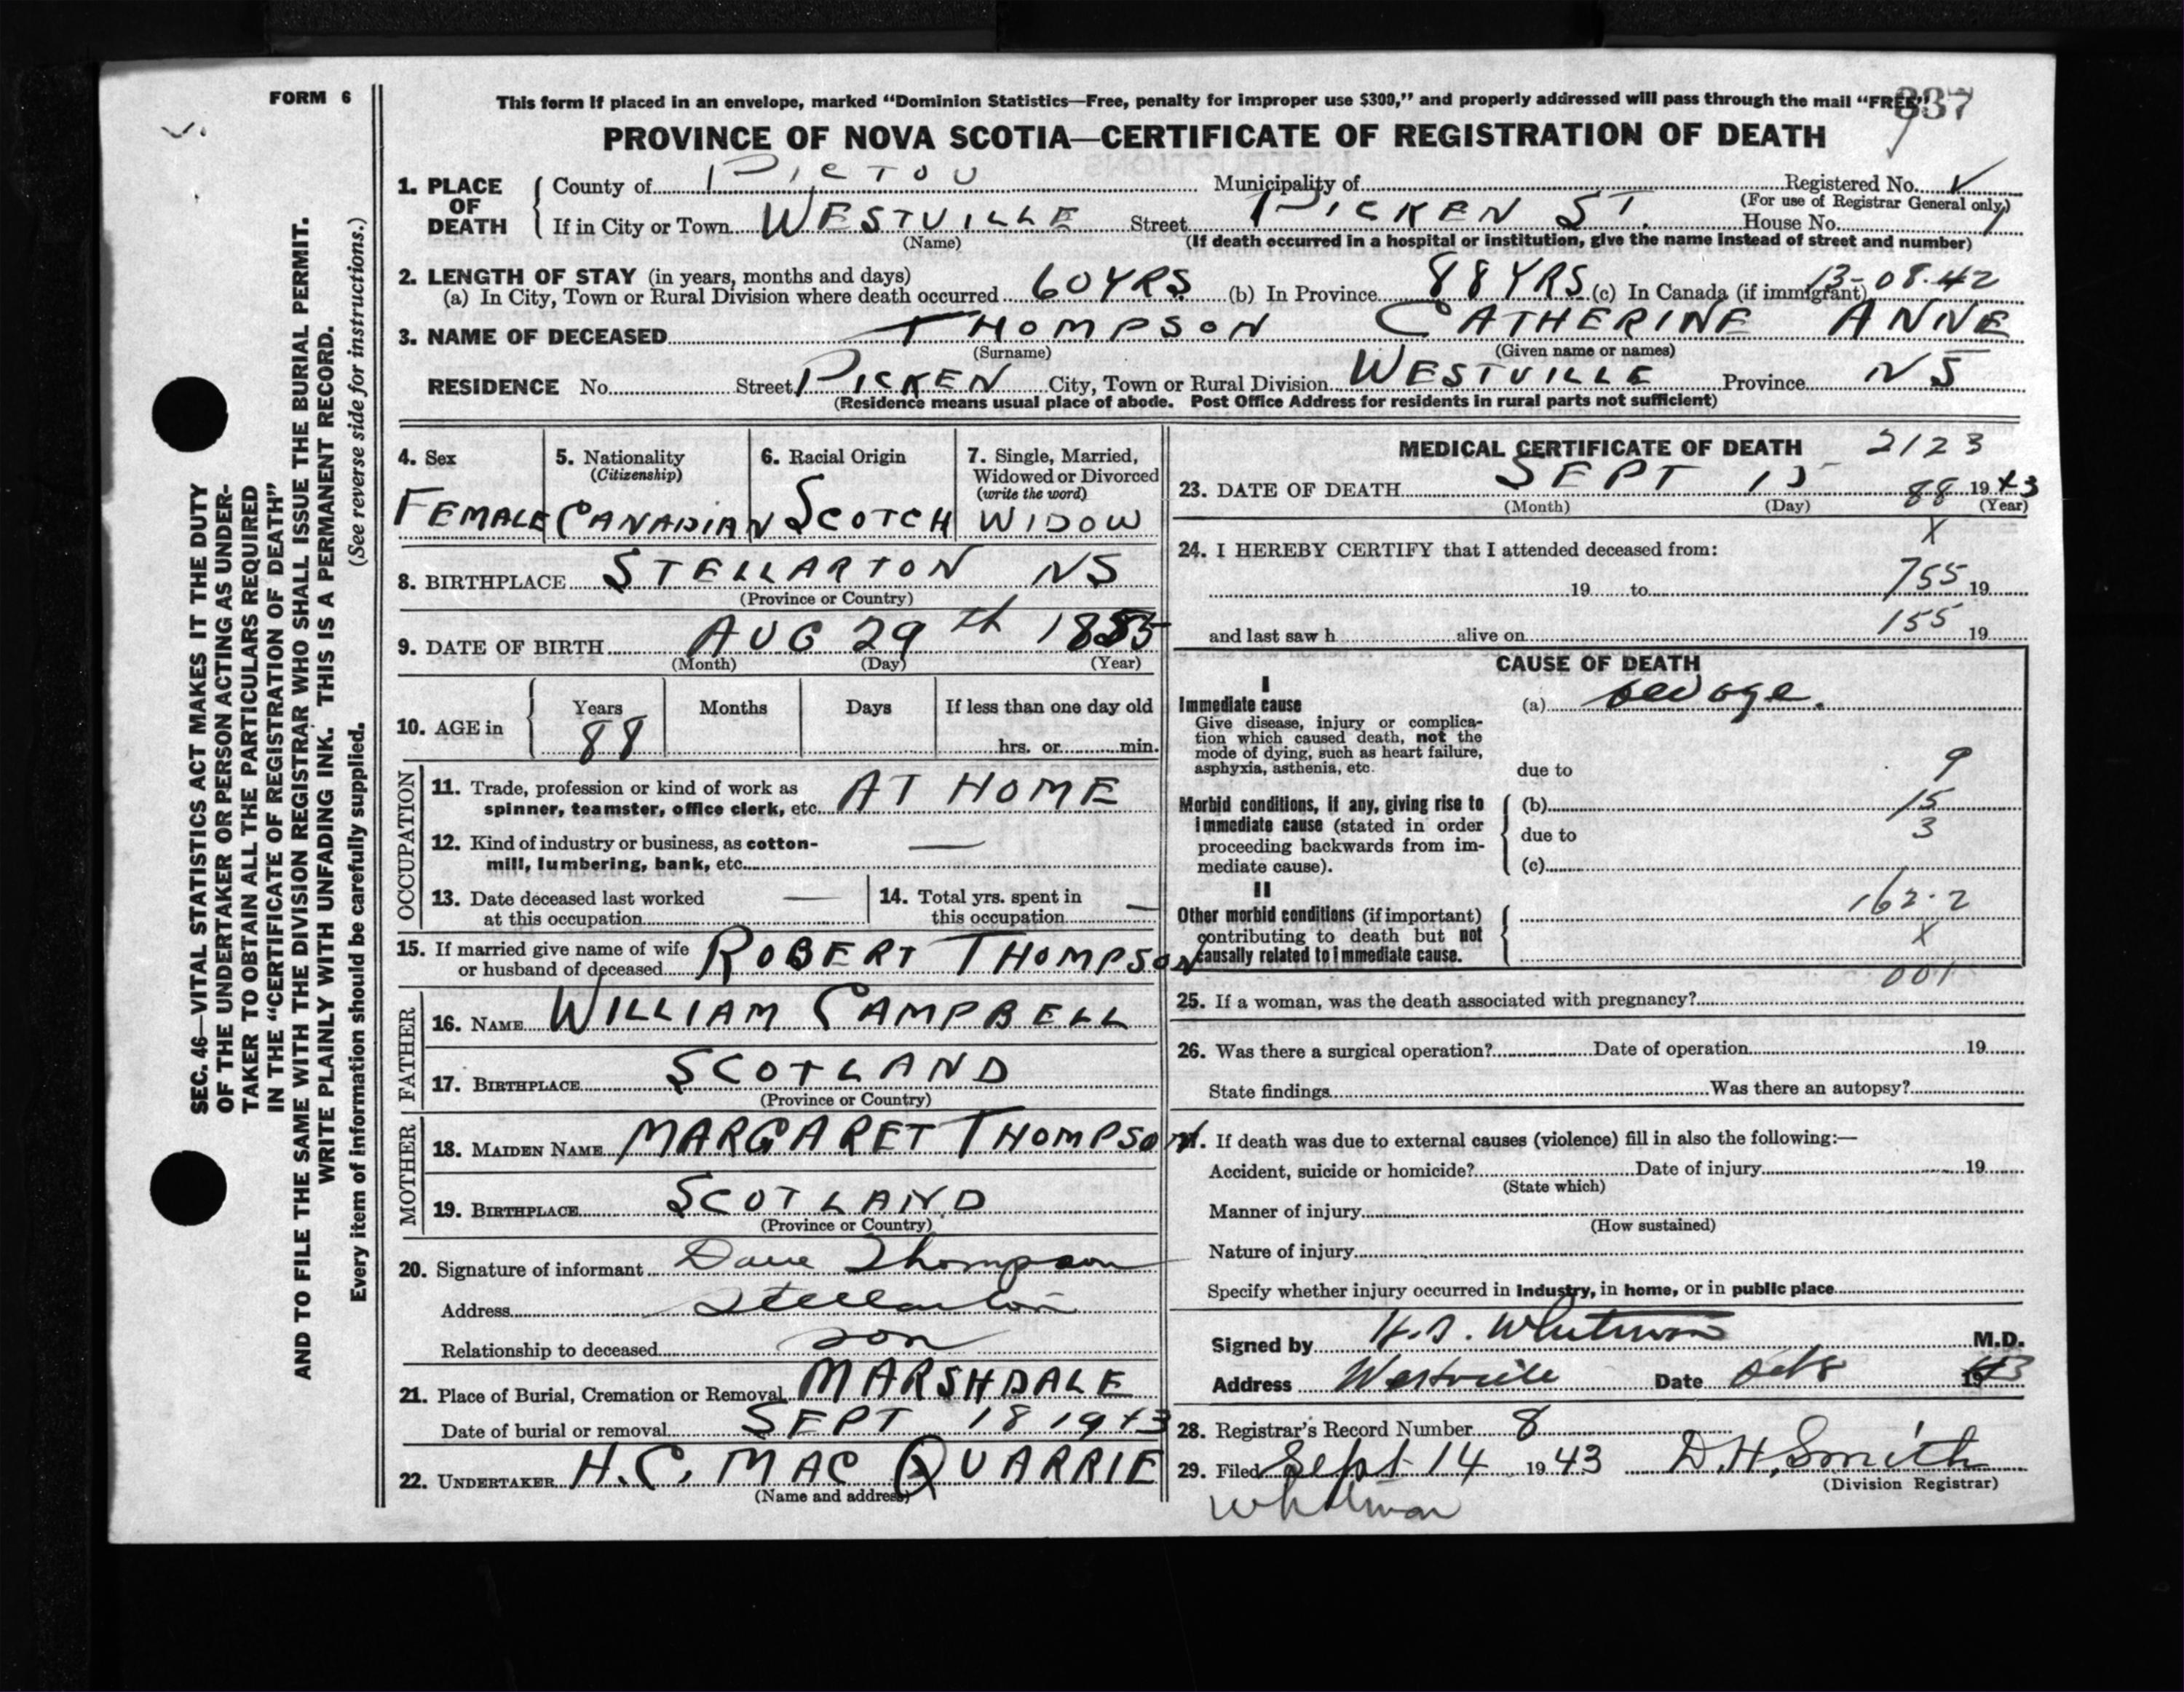 FORM 6
This form if placed in an envelope, marked “Dominion Statistics—Free, penalty for improper use $300,” and properly addressed will pass through the mail “FREE”
337
PROVINCE OF NOVA SCOTIA—CERTIFICATE OF REGISTRATION OF DEATH
1. PLACE OF DEATH
County of PICTOU Municipality of Registered No.
(For use of Registrar General only)
If in City or Town WESTVILLE Street PICKEN ST. House No.
(Name)
(If death occurred in a hospital or institution, give the name instead of street and number)
2. LENGTH OF STAY (in years, months and days)
(a) In City, Town or Rural Division where death occurred 60 YRS (b) In Province 88 YRS (c) In Canada (if immigrant) 13-08-42
3. NAME OF DECEASED THOMPSON CATHERINE ANNE
(Surname) (Given name or names)
RESIDENCE No. Street PICKEN City, Town or Rural Division WESTVILLE Province NS
(Residence means usual place of abode. Post Office Address for residents in rural parts not sufficient)
4. Sex
FEMALE
5. Nationality
(Citizenship)
CANADIAN
6. Racial Origin
SCOTCH
7. Single, Married,
Widowed or Divorced
(write the word)
WIDOW
8. BIRTHPLACE STELLARTON NS
(Province or Country)
9. DATE OF BIRTH AUG 29th 1855
(Month) (Day) (Year)
10. AGE in
Years Months Days If less than one day old
88 hrs. or min.
OCCUPATION
11. Trade, profession or kind of work as
spinner, teamster, office clerk, etc. AT HOME
12. Kind of industry or business, as cotton-
mill, lumbering, bank, etc. —
13. Date deceased last worked
at this occupation —
14. Total yrs. spent in
this occupation —
15. If married give name of wife
or husband of deceased ROBERT THOMPSON
FATHER
16. NAME WILLIAM CAMPBELL
17. BIRTHPLACE SCOTLAND
(Province or Country)
MOTHER
18. MAIDEN NAME MARGARET THOMPSON
19. BIRTHPLACE SCOTLAND
(Province or Country)
20. Signature of informant Dave Thompson
Address Stellarton
Relationship to deceased son
21. Place of Burial, Cremation or Removal MARSHDALE
Date of burial or removal SEPT 18 1943
22. UNDERTAKER H.C. MAC QUARRIE
(Name and address)
MEDICAL CERTIFICATE OF DEATH 2123
23. DATE OF DEATH SEPT 15 88 1943
(Month) (Day) (Year)
X
24. I HEREBY CERTIFY that I attended deceased from:
19 to 755 19
and last saw h alive on 155 19
CAUSE OF DEATH
I
Immediate cause
Give disease, injury or complica-
tion which caused death, not the
mode of dying, such as heart failure,
asphyxia, asthenia, etc.
(a) old age.
due to 9
Morbid conditions, if any, giving rise to
immediate cause (stated in order
proceeding backwards from im-
mediate cause).
(b) 15
due to 3
(c)
II
Other morbid conditions (if important)
contributing to death but not
causally related to immediate cause.
162.2
X
001
25. If a woman, was the death associated with pregnancy?
26. Was there a surgical operation? Date of operation 19
State findings Was there an autopsy?
If death was due to external causes (violence) fill in also the following:—
Accident, suicide or homicide? Date of injury 19
(State which)
Manner of injury
(How sustained)
Nature of injury
Specify whether injury occurred in industry, in home, or in public place
Signed by Whitman M.D.
Address Westville Date Oct 8 1943
28. Registrar's Record Number 8
29. Filed Sept 14 1943 D.H. Smith
(Division Registrar)
Whitman
SEC. 46—VITAL STATISTICS ACT MAKES IT THE DUTY
OF THE UNDERTAKER OR PERSON ACTING AS UNDER-
TAKER TO OBTAIN ALL THE PARTICULARS REQUIRED
IN THE “CERTIFICATE OF REGISTRATION OF DEATH”
AND TO FILE THE SAME WITH THE DIVISION REGISTRAR WHO SHALL ISSUE THE BURIAL PERMIT.
WRITE PLAINLY WITH UNFADING INK. THIS IS A PERMANENT RECORD.
Every item of information should be carefully supplied. (See reverse side for instructions.)